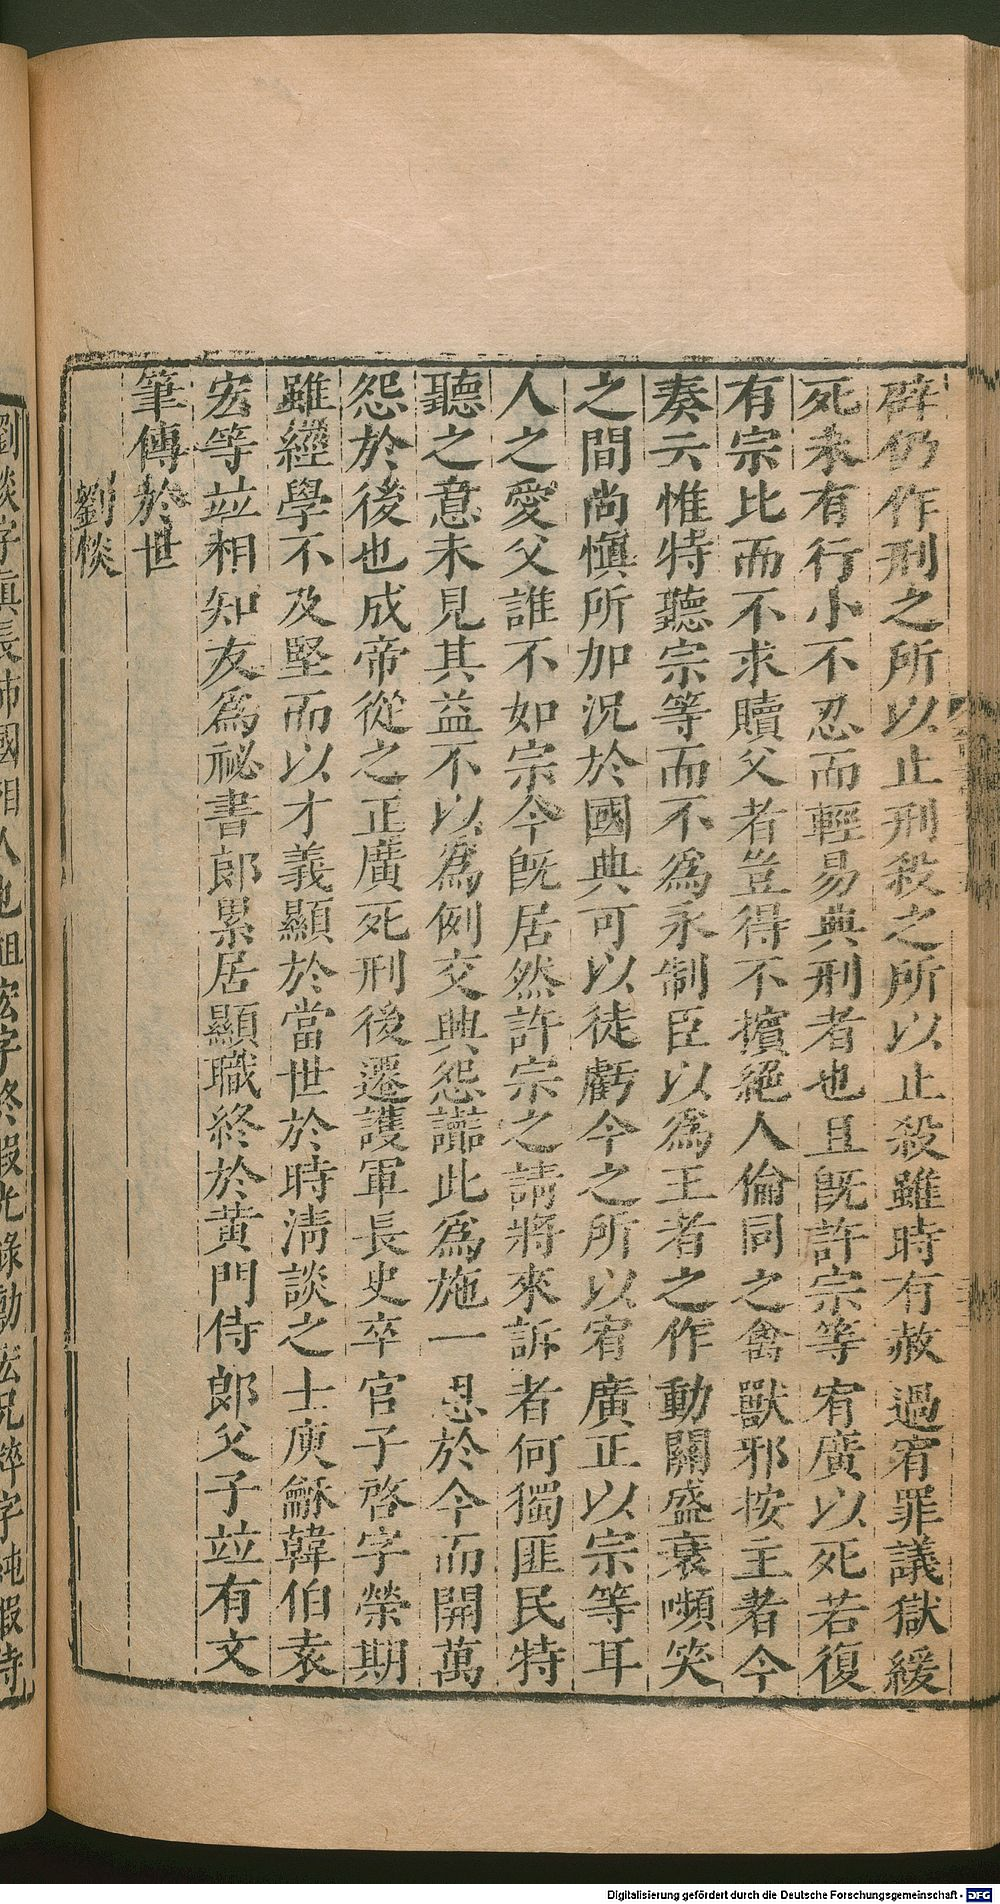 辟仍作刑之所以止刑殺之所以止殺雖時有赦過宥罪議獄緩
死未有行小不忍而輕易典刑者也且旣許宗等宥廣以死若復
有宗比而不求贖父者豈得不擯絕人倫同之禽獸邪按主者今
奏云惟特聽宗等而不爲永制臣以爲王者之作動關盛衰嚬笑
之間尚愼所加況於國典可以徒虧今之所以宥廣正以宗等耳
人之愛父誰不如宗今旣居然許宗之請將來訴者何獨匪民特
聽之意未見其益不以爲例交興怨讟此爲施一恩於今而開萬
怨於後也成帝從之正廣死刑後遷護軍長史卒官子啓字榮期
雖經學不及堅而以才義顯於當世於時淸談之士庾龢韓伯袁
宏等竝相知友爲祕書郎累居顯職終於黃門侍郞父子竝有文
筆傳於世
劉惔
劉惔字眞長沛國相人也祖宏字終嘏光祿勳宏兄粹字純嘏侍
Digitalisierung gefördert durch die Deutsche Forschungsgemeinschaft - DFG